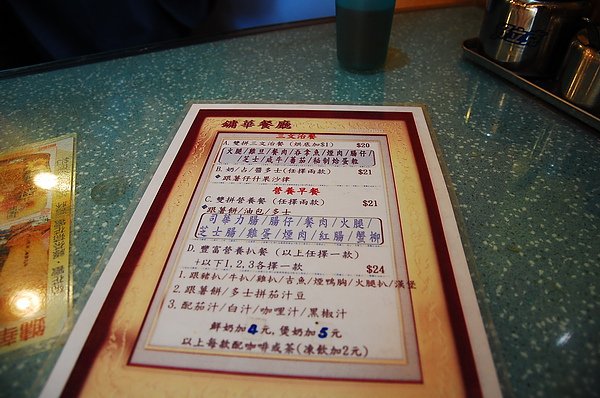 鏽華餐廳
三文治餐
A. 雙拼三文治餐 (烘底加$1) $20
火腿/雞豆/餐肉/吞拿魚/煙肉/腸仔/
芝士/咸牛/蕃茄/秘制蛤蛋粒
B. 奶/占/醬多士(任擇兩款) $21
◆跟薯仔什果沙律
營養早餐
C. 雙拼營養餐 (任擇兩款) $21
◆跟薯餅/油包/多士
司華力腸/腸仔/餐肉/火腿/
芝士腸/雞蛋/煙肉/紅腸/蟹柳
D. 豐富營養扒餐 (以上任擇一款)
+以下1,2,3各擇一款 $24
1. 跟豬扒/牛扒/雞扒/吉魚/煙鴨胸/火腿扒/漢堡
2. 跟薯餅/多士拼茄汁豆
3. 配茄汁/白汁/咖哩汁/黑椒汁
鮮奶加4元, 煲奶加5元
以上每款配咖啡或茶(凍飲加2元)